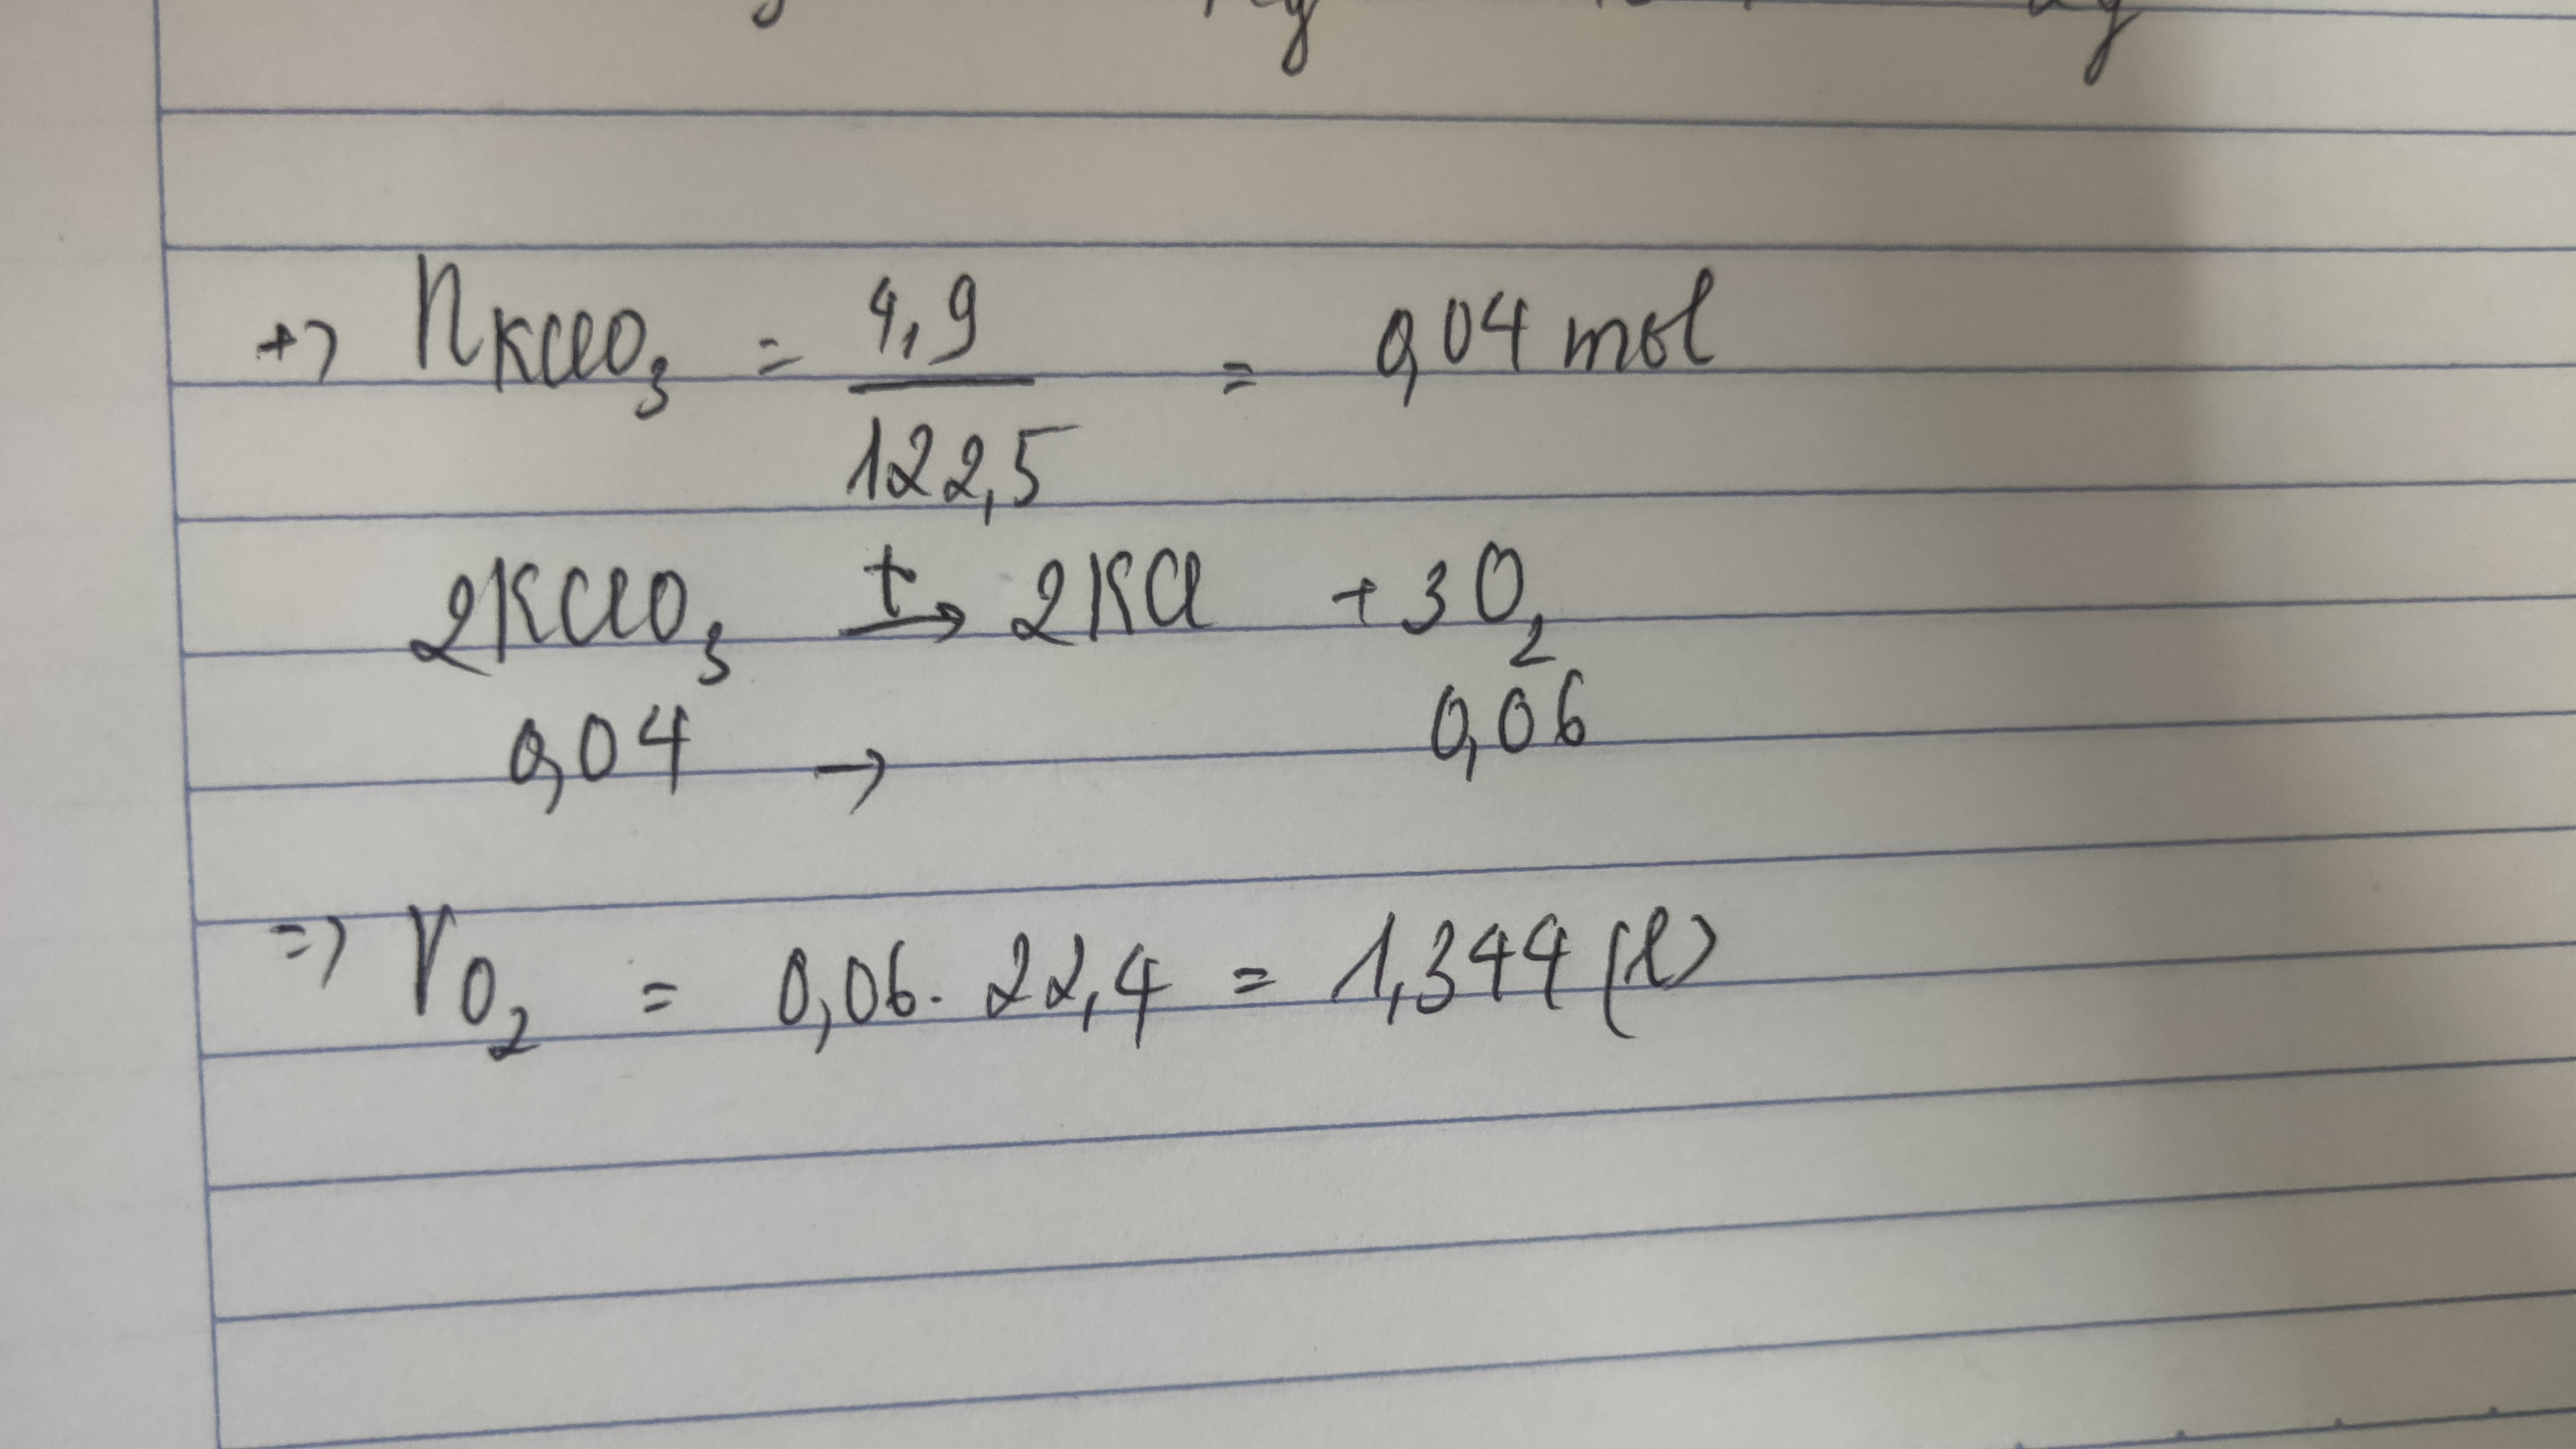 +) nKClO3 = 4,9 / 122,5 = 0,04 mol
2KClO3 t→ 2KCl + 3O2
0,04 → 0,06
=> VO2 = 0,06. 22,4 = 1,344 (l)